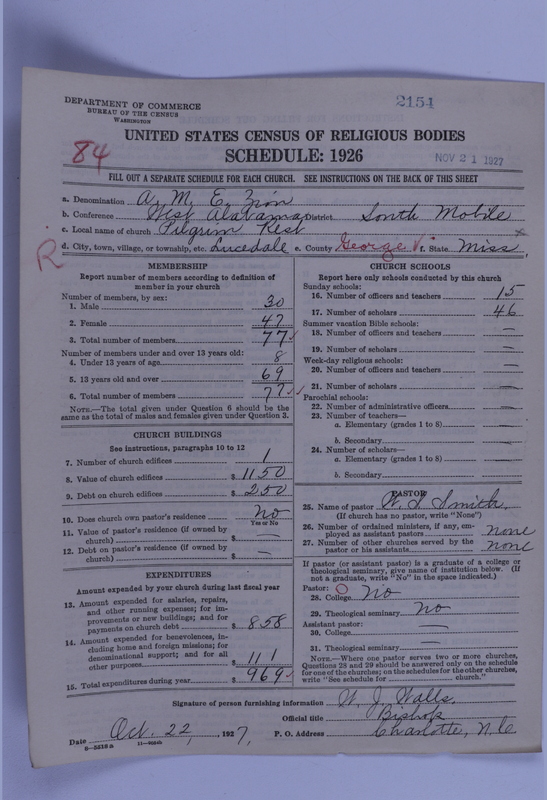 2154
DEPARTMENT OF COMMERCE
BUREAU OF THE CENSUS
WASHINGTON
UNITED STATES CENSUS OF RELIGIOUS BODIES
84
SCHEDULE: 1926
NOV 21 1927
FILL OUT A SEPARATE SCHEDULE FOR EACH CHURCH. SEE INSTRUCTIONS ON THE BACK OF THIS SHEET
a. Denomination A. M. E. Zion
b. Conference West Alabama District South Mobile
c. Local name of church Pilgrim Rest
R d. City, town, village, or township, etc. Lucedale e. County George f. State Miss
MEMBERSHIP
Report number of members according to definition of
member in your church
Number of members, by sex:
1. Male 30
2. Female 47
3. Total number of members 77
Number of members under and over 13 years old:
4. Under 13 years of age 8
5. 13 years old and over 69
6. Total number of members 77
NOTE.—The total given under Question 6 should be
same as the total of males and females given under Question 3.
CHURCH BUILDINGS
See instructions, paragraphs 10 to 12
7. Number of church edifices 1
8. Value of church edifices $ 1150
9. Debt on church edifices $ 250
10. Does church own pastor's residence no
Yes or No
11. Value of pastor's residence (if owned by
church) $ —
12. Debt on pastor's residence (if owned by
church) $ —
EXPENDITURES
Amount expended by church during last fiscal year
13. Amount expended for salaries, repairs,
and other running expenses; for im-
provements or new buildings; and for
payments on church debt $ 858
14. Amount expended for benevolences, in-
cluding home and foreign missions; for
denominational support; and for all
other purposes $ 111
15. Total expenditures during year $ 969
CHURCH SCHOOLS
Report here only schools conducted by this church
Sunday schools:
16. Number of officers and teachers 15
17. Number of scholars 46
Summer vacation Bible schools:
18. Number of officers and teachers —
19. Number of scholars —
Week-day religious schools:
20. Number of officers and teachers —
21. Number of scholars —
Parochial schools:
22. Number of administrative officers —
23. Number of teachers—
a. Elementary (grades 1 to 8) —
b. Secondary —
24. Number of scholars—
a. Elementary (grades 1 to 8) —
b. Secondary —
PASTOR
25. Name of pastor Smith
(If church has no pastor, write "None")
26. Number of ordained ministers, if any, em-
ployed as assistant pastors none
27. Number of other churches served by the
pastor or his assistants none
If pastor (or assistant pastor) is a graduate of a college or
theological seminary, give name of institution below. (If
not a graduate, write "No" in the space indicated.)
Pastor:
28. College No
29. Theological seminary No
Assistant pastor:
30. College —
31. Theological seminary —
NOTE.—Where one pastor serves two or more churches,
Questions 28 and 29 should be answered only on the schedule
for one of the churches; on the schedules for the other churches,
write "See schedule for church."
Signature of person furnishing information W. J. Walls,
Official title Bishop
Date Oct. 22, 1927, P. O. Address Charlotte, N.C.
8-5218a